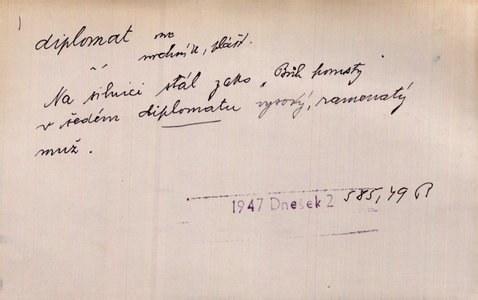 diplomat
svrchník, plášť.
Na silnici stál jako „Bůh pomsty
v šedém diplomatu vysoký, ramenatý
muž.
1947 Dnešek 2 585,49 B